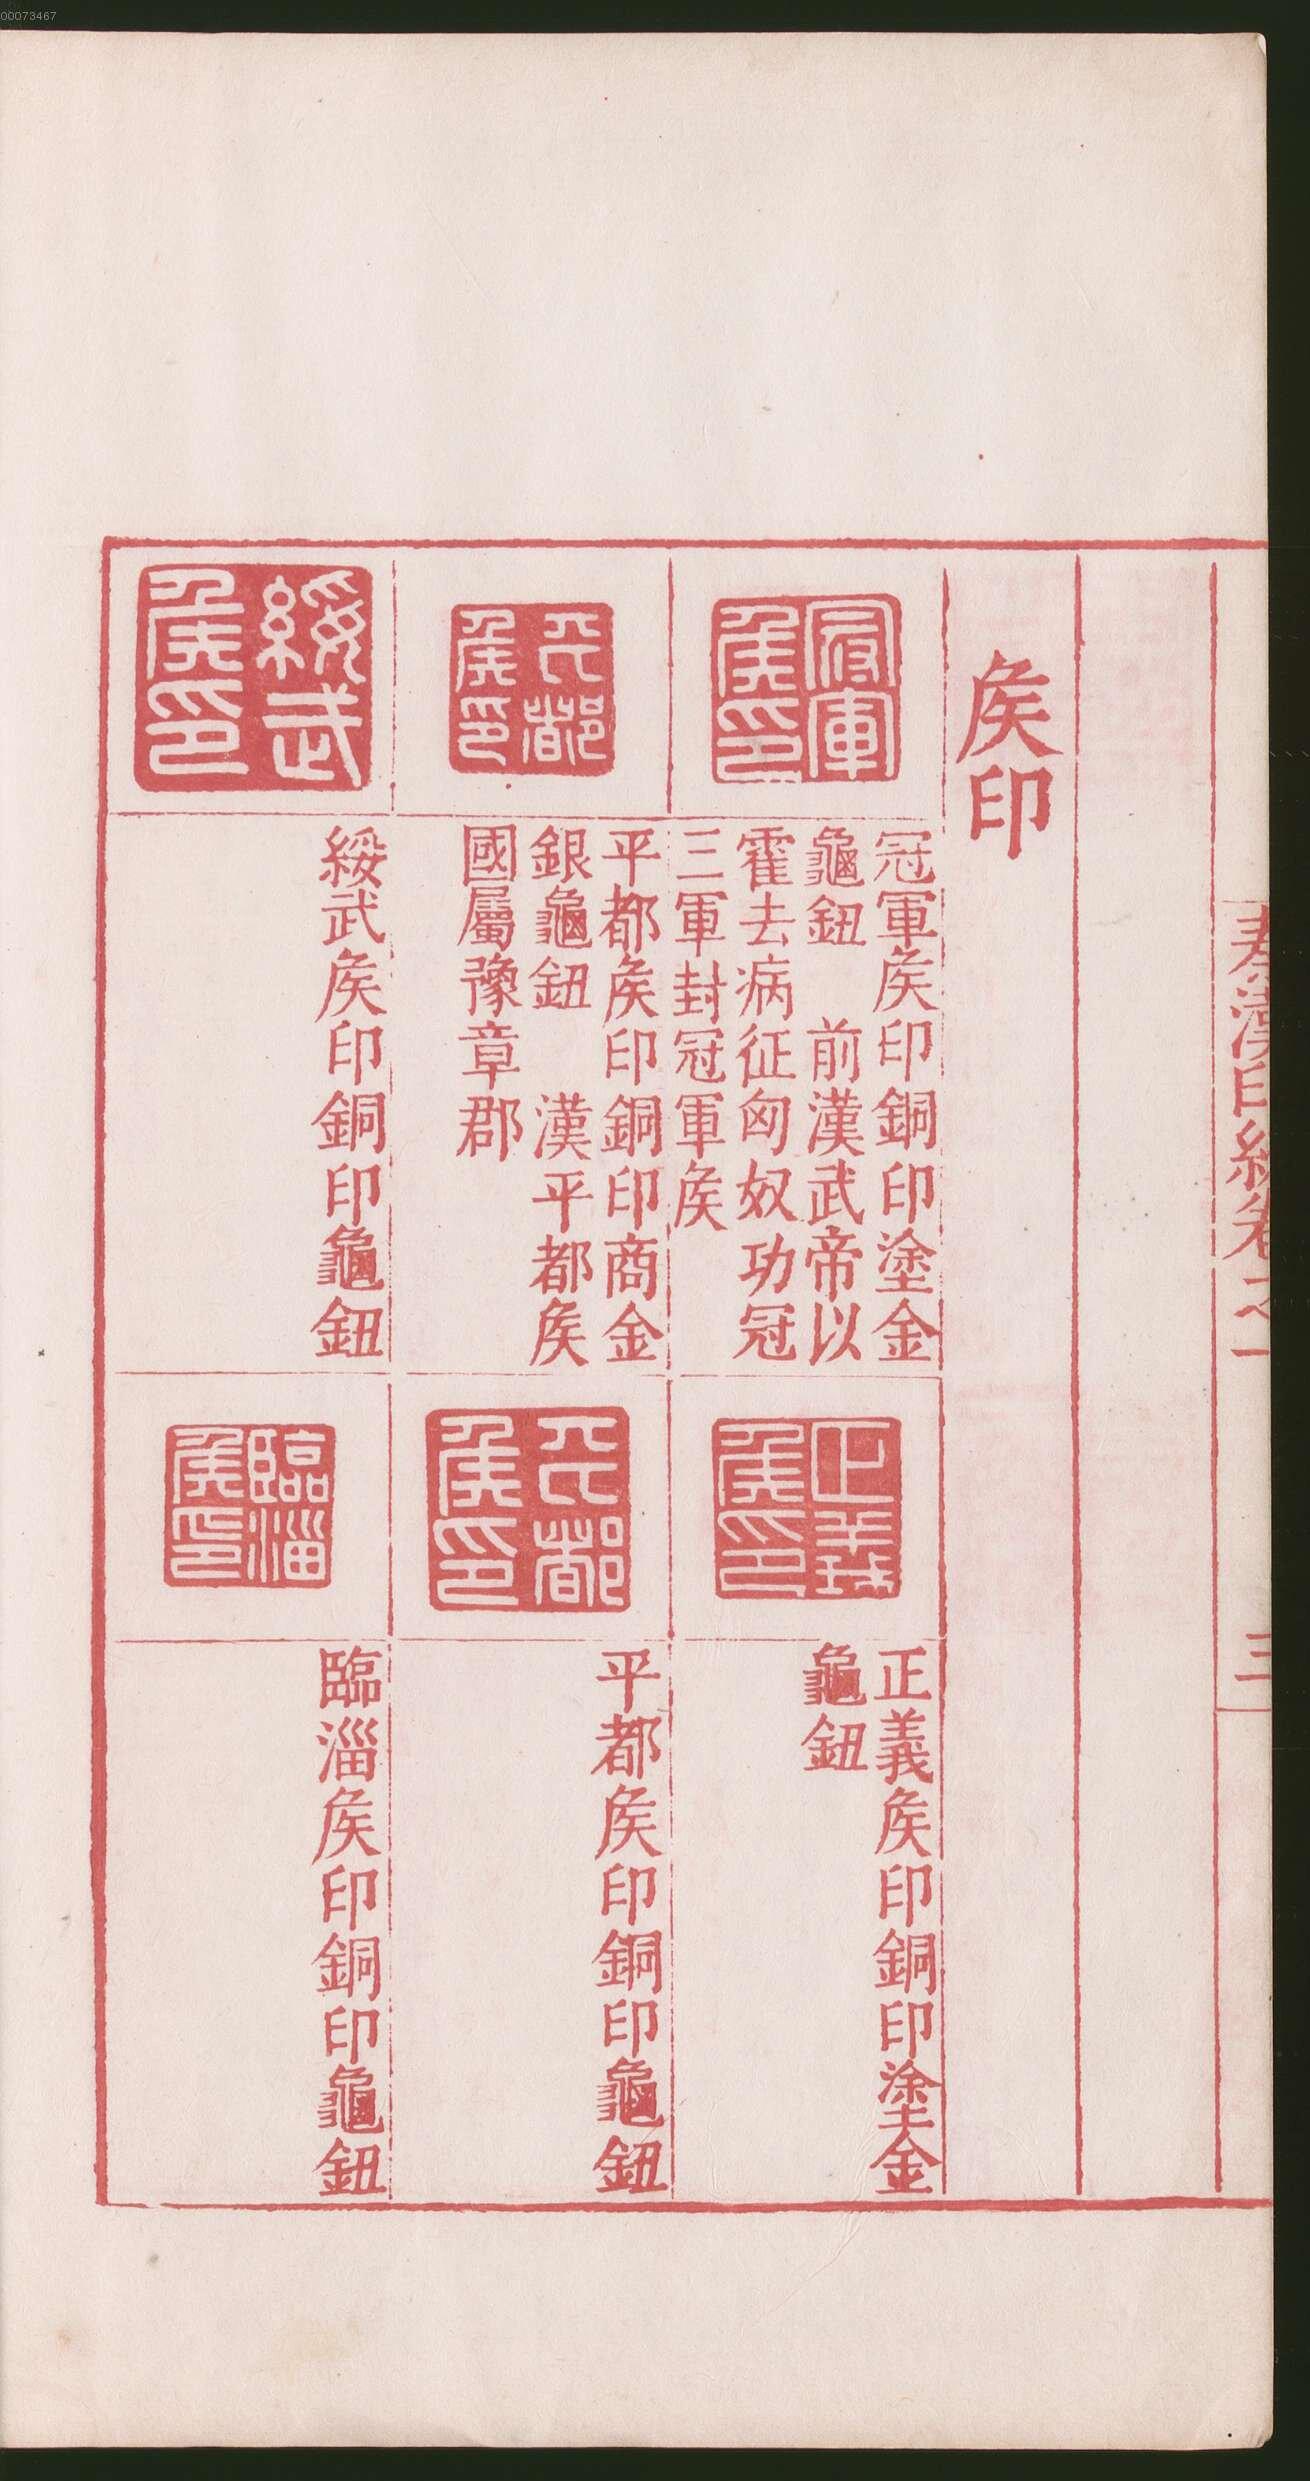 00073467
秦漢印統卷之一
三
矦印
冠軍矦印
冠軍矦印銅印塗金
龜鈕　前漢武帝以
霍去病征匈奴功冠
三軍封冠軍矦
正義矦印
正義矦印銅印塗金
龜鈕
平都矦印
平都矦印銅印商金
銀龜鈕　漢平都矦
國屬豫章郡
平都矦印
平都矦印銅印龜鈕
綏武矦印
綏武矦印銅印龜鈕
臨淄矦印
臨淄矦印銅印龜鈕